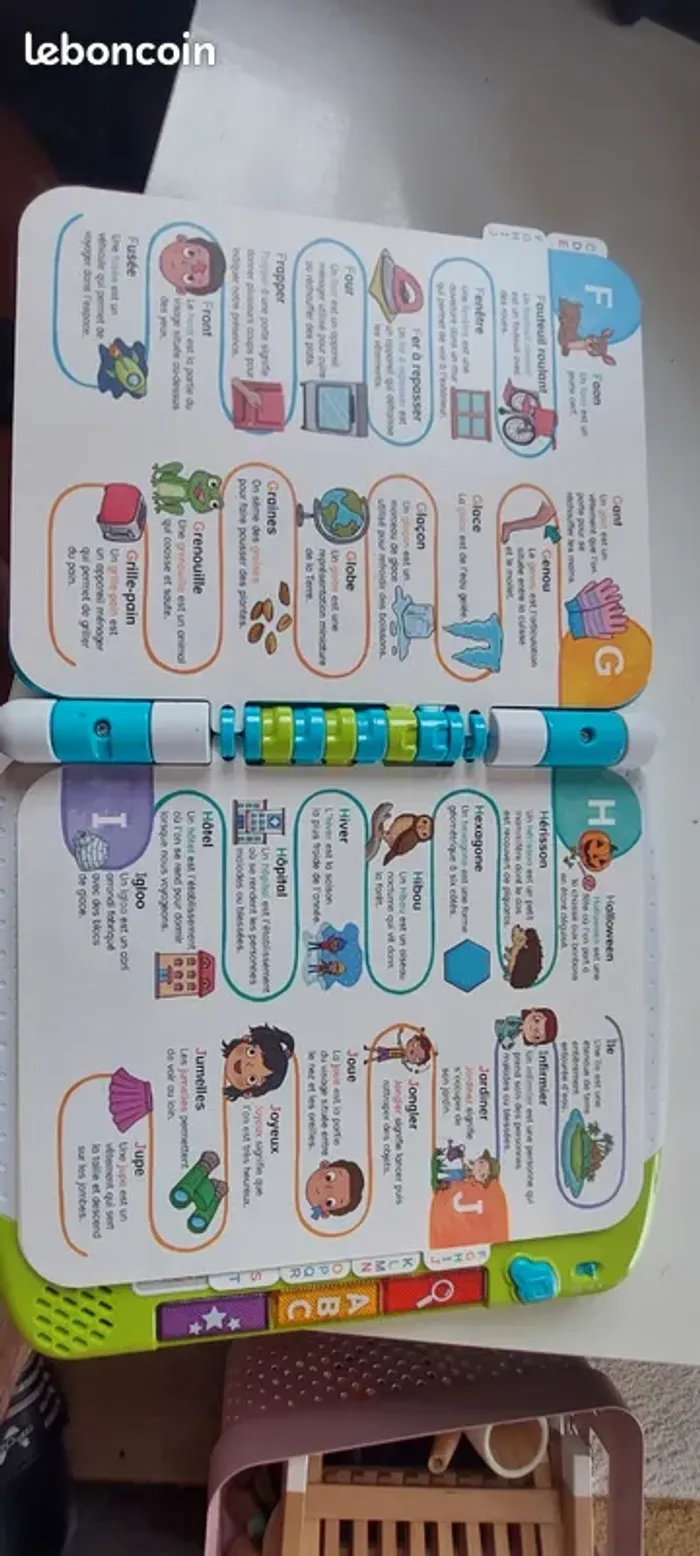 leboncoin
C
D
E
F
G
H
I
J
F
Faon
Un faon est un
jeune cerf.
Fauteuil roulant
Un fauteuil roulant
est un fauteuil avec
des roues.
Fenêtre
Une fenêtre est une
ouverture dans un mur
qui permet de voir à l'extérieur.
Fer à repasser
Un fer à repasser est
un appareil qui défroisse
les vêtements.
Four
Un four est un appareil
ménager utilisé pour cuire
ou réchauffer des plats.
Frapper
Frapper à une porte signifie
donner plusieurs coups pour
indiquer notre présence.
Front
Le front est la partie du
visage située au-dessus
des yeux.
Fusée
Une fusée est un
véhicule qui permet de
voyager dans l'espace.
G
Gant
Un gant est un
vêtement que l'on
porte pour se
réchauffer les mains.
Genou
Le genou est l'articulation
située entre la cuisse
et le mollet.
Glace
La glace est de l'eau gelée.
Glaçon
Un glaçon est un
morceau de glace
utilisé pour refroidir des boissons.
Globe
Un globe est une
représentation miniature
de la Terre.
Graines
On sème des graines
pour faire pousser des plantes.
Grenouille
Une grenouille est un animal
qui coasse et saute.
Grille-pain
Un grille-pain est
un appareil ménager
qui permet de griller
du pain.
H
Halloween
Halloween est une
fête où l'on part à
la chasse aux bonbons
en étant déguisé.
Hérisson
Un hérisson est un petit
mammifère dont le dos
est recouvert de piquants.
Hexagone
Un hexagone est une forme
géométrique à six côtés.
Hibou
Un hibou est un oiseau
nocturne qui vit dans
la forêt.
Hiver
L'hiver est la saison
la plus froide de l'année.
Hôpital
Un hôpital est l'établissement
où se rendent les personnes
malades ou blessées.
Hôtel
Un hôtel est l'établissement
où l'on se rend pour dormir
lorsque nous voyageons.
I
Igloo
Un igloo est un abri
arrondi fabriqué
avec des blocs
de glace.
Île
Une île est une
étendue de terre
entièrement
entourée d'eau.
Infirmier
Un infirmier est une personne qui
prend soin des personnes
malades ou blessées.
J
Jardiner
Jardiner signifie
s'occuper de
son jardin.
Jongler
Jongler signifie lancer puis
rattraper des objets.
Joue
La joue est la partie
du visage située entre
le nez et les oreilles.
Joyeux
Joyeux signifie que
l'on est très heureux.
Jumelles
Les jumelles permettent
de voir au loin.
Jupe
Une jupe est un
vêtement qui serre
la taille et descend
sur les jambes.
F
G
H
I
J
K
L
M
N
O
P
Q
R
S
T
ABC